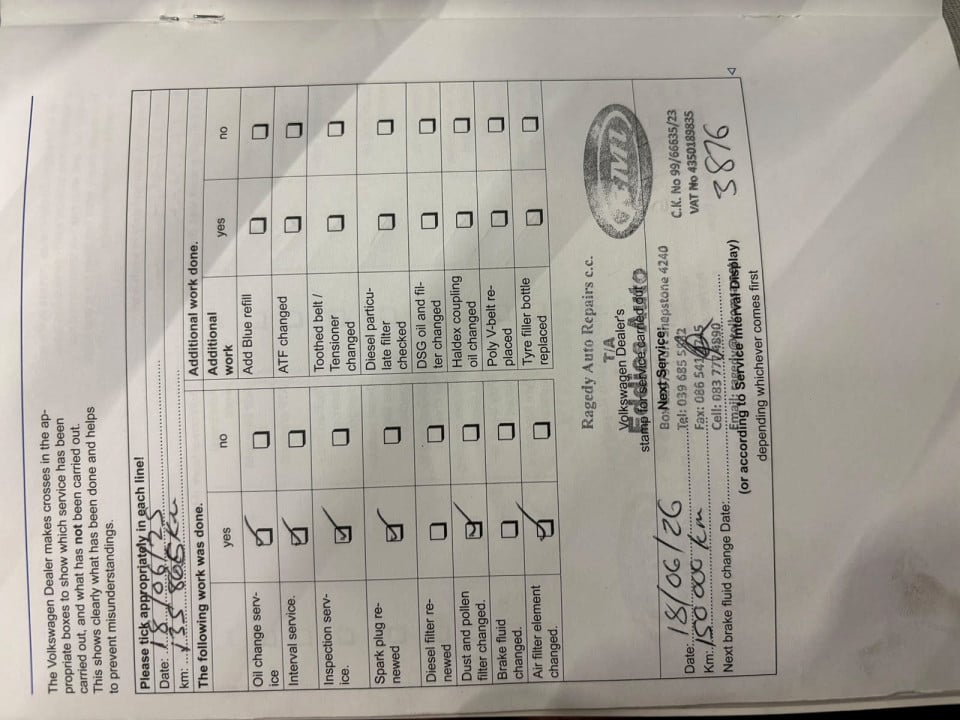 The Volkswagen Dealer makes crosses in the ap-
propriate boxes to show which service has been
carried out, and what has not been carried out.
This shows clearly what has been done and helps
to prevent misunderstandings.
Please tick appropriately in each line!
Date: 18/06/25
km: 135
The following work was done.
yes no
Oil change serv-
ice
Interval service.
Inspection serv-
ice.
Spark plug re-
newed
Diesel filter re-
newed
Dust and pollen
filter changed.
Brake fluid
changed.
Air filter element
changed.
Additional work done.
Additional
work
yes no
Add Blue refill
ATF changed
Toothed belt /
Tensioner
changed
Diesel particu-
late filter
checked
DSG oil and fil-
ter changed
Haldex coupling
oil changed
Poly V-belt re-
placed
Tyre filler bottle
replaced
Ragedy Auto Repairs c.c.
T/A
Eddie Auto
RMI
Volkswagen Dealer's
stamp for service carried out
Next Service:
Shepstone 4240
Tel: 039 685
Fax: 086
Cell: 083
Email:
C.K. No 99/66635/23
VAT No 4350189835
3876
Date: 18/06/26
Km: 150 000 km
Next brake fluid change Date:
(or according to Service Interval Display)
depending whichever comes first